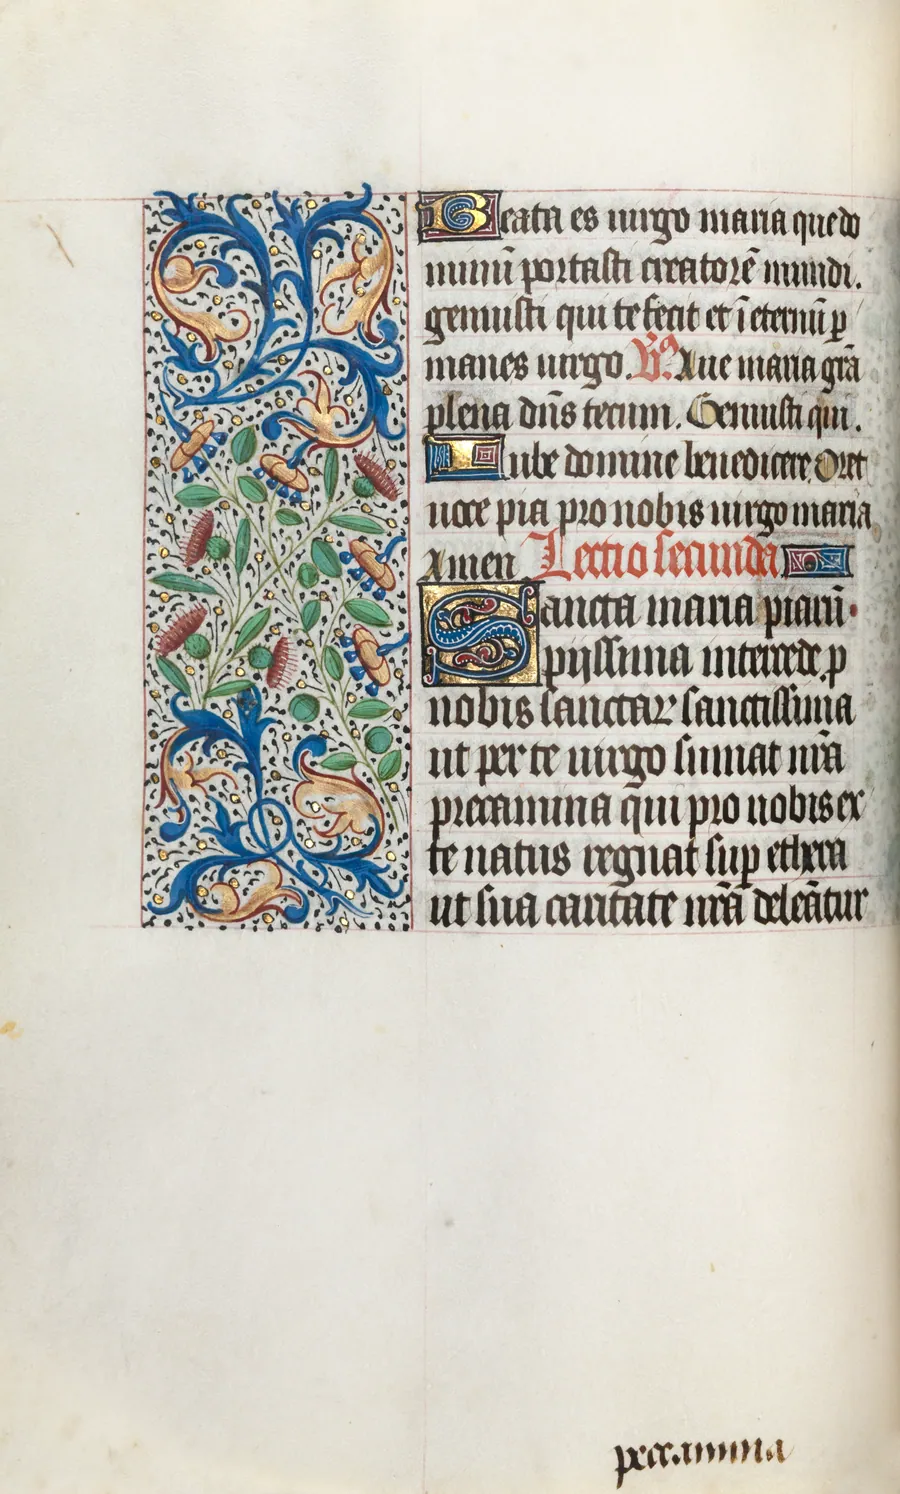 Beata es uirgo maria que do
minū portasti creatorē mundi.
genuisti qui te fecit et ī eternū p
manes uirgo. Vͣ. Aue maria grā
plena dn̄s tecum. Genuisti qui.
Iube domine benedicere. Oret
uoce pia pro nobis uirgo maria
Amen Lectio secunda
Sancta maria piarū
piissima intercede p
nobis sanctar sanctissima
ut per te uirgo sumat nr̄a
precamina qui pro nobis ex
te natus regnat sup ethera
ut sua caritate nr̄a deleātur
peccamina